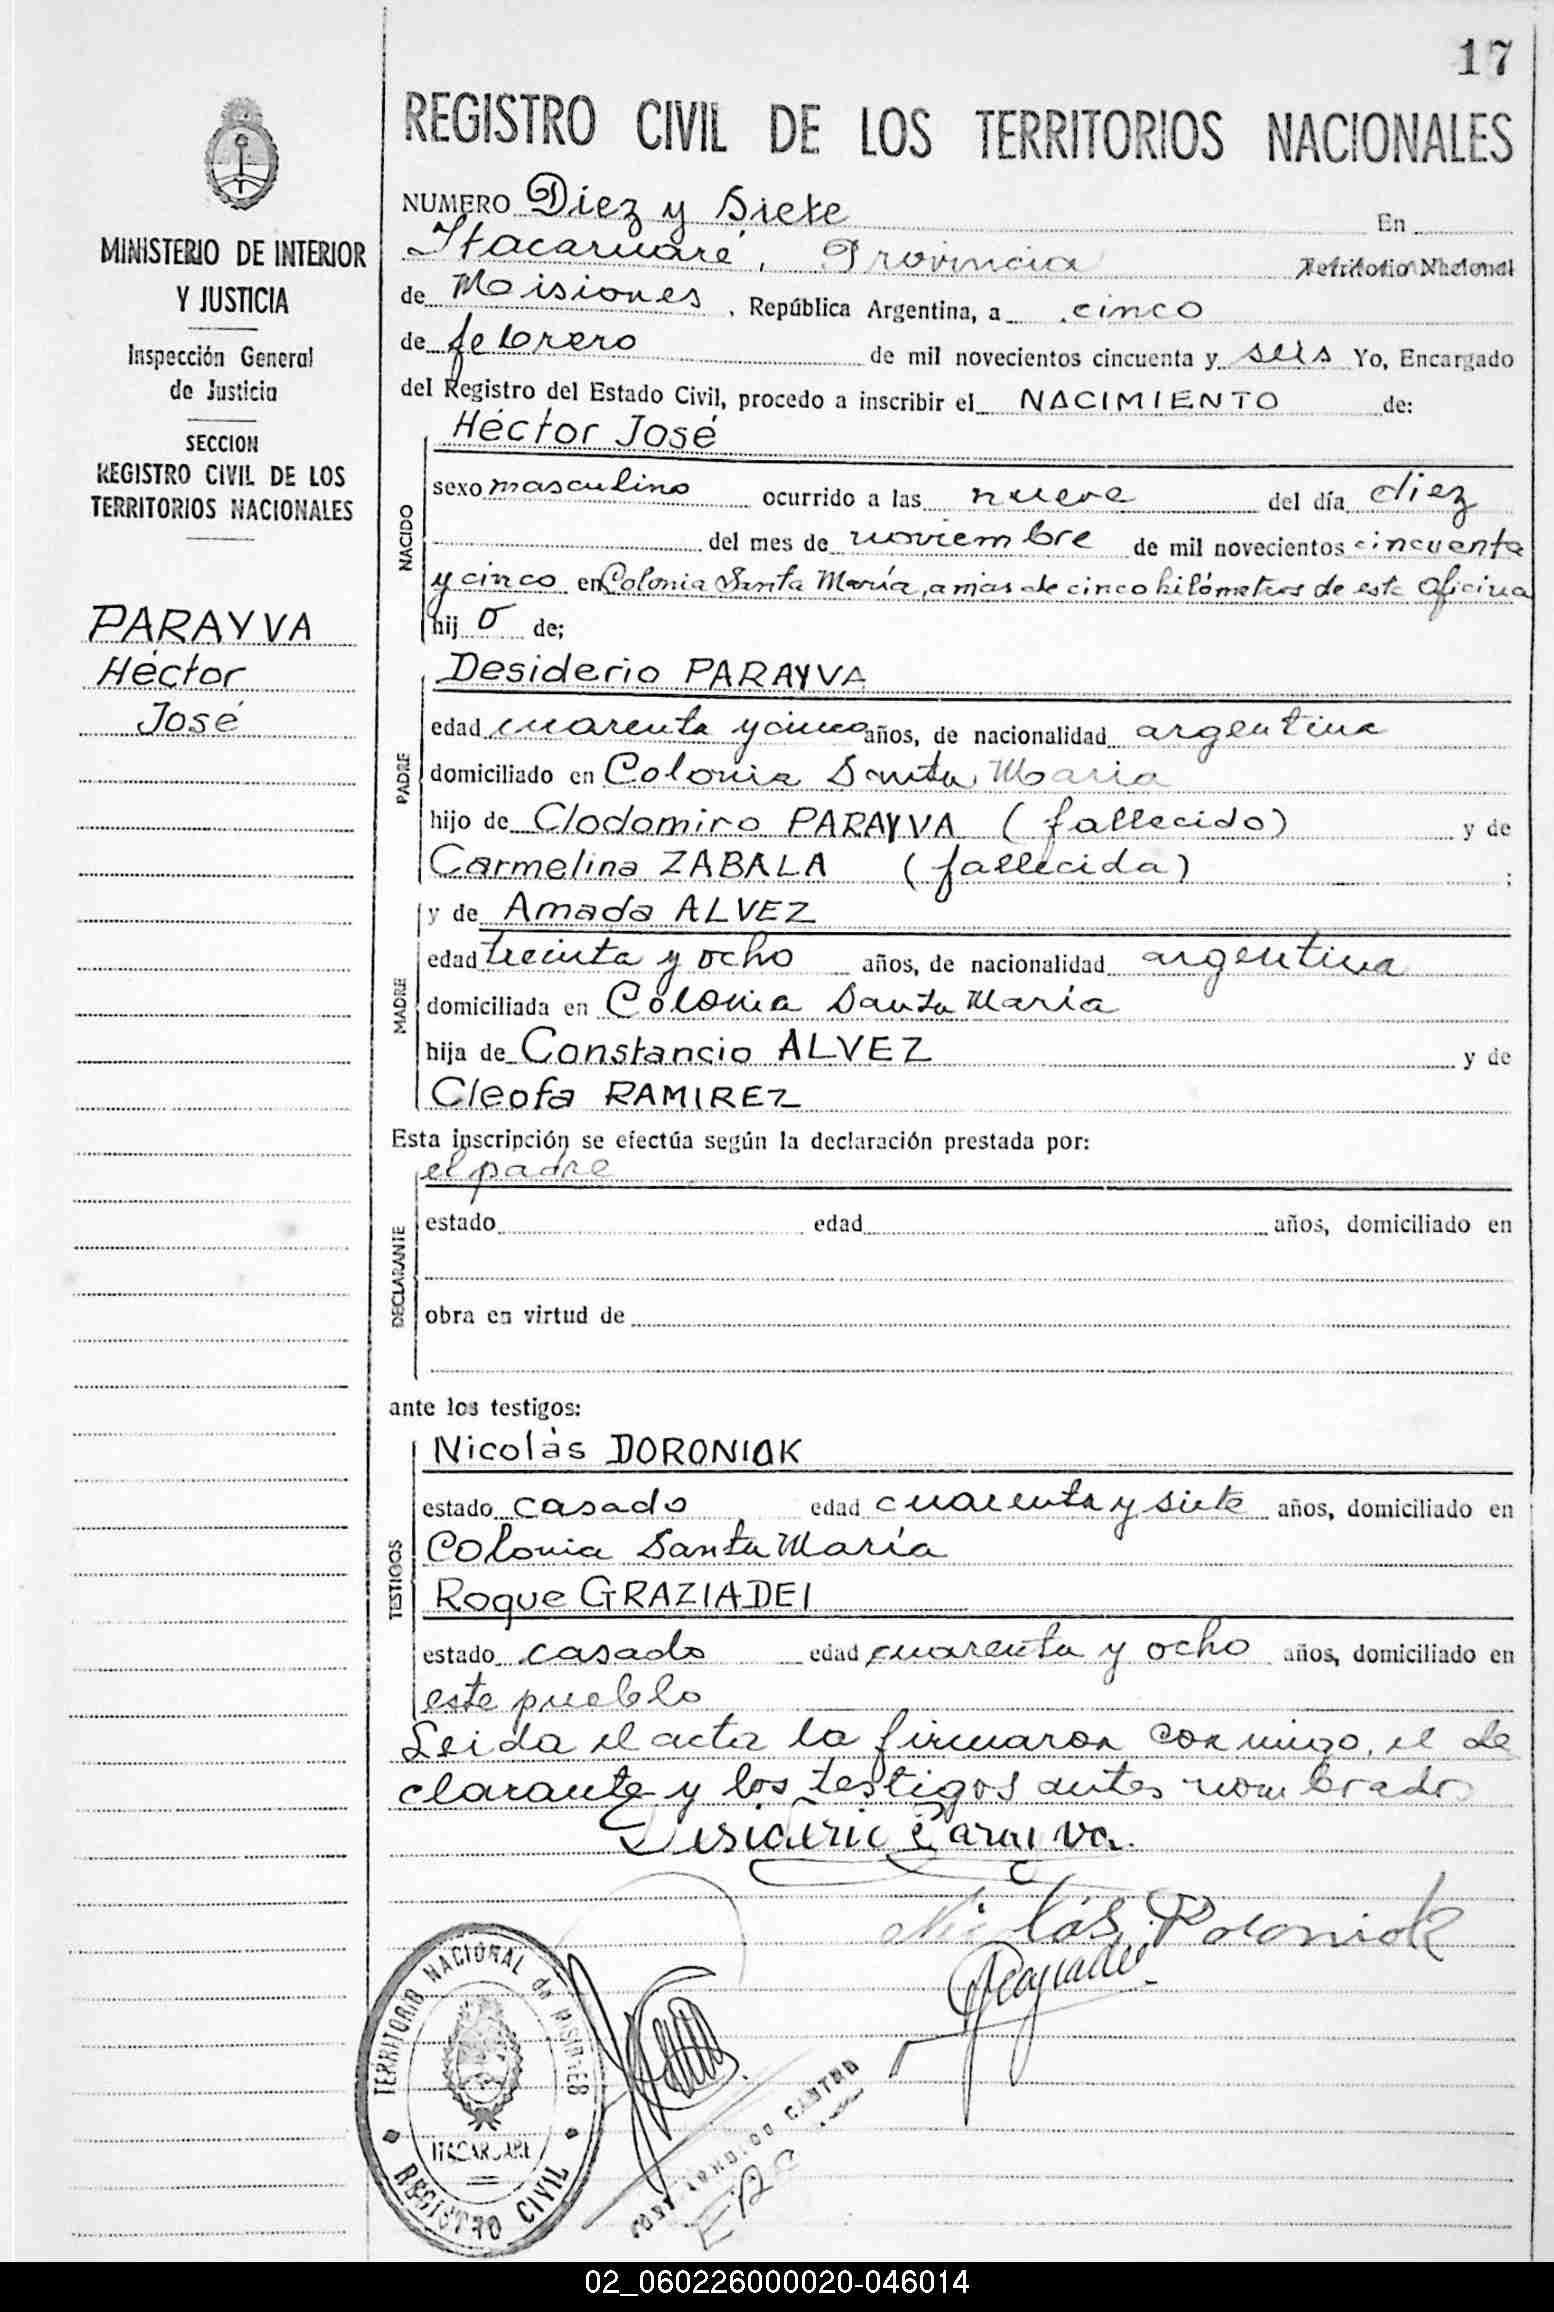 17
MINISTERIO DE INTERIOR
Y JUSTICIA
Inspección General
de Justicia
SECCION
REGISTRO CIVIL DE LOS
TERRITORIOS NACIONALES
PARAYVA
Héctor
José
REGISTRO CIVIL DE LOS TERRITORIOS NACIONALES
NUMERO Diez y Siete En
Itacaruaré, Provincia Territorio Nacional
de Misiones, República Argentina, a cinco
de febrero de mil novecientos cincuenta y seis Yo, Encargado
del Registro del Estado Civil, procedo a inscribir el NACIMIENTO de:
NACIDO
Héctor José
sexo masculino ocurrido a las nueve del día diez
del mes de noviembre de mil novecientos cincuenta
y cinco en Colonia Santa María, a mas de cinco kilómetros de esta Oficina
hij o de;
PADRE
Desiderio PARAYVA
edad cuarenta y cinco años, de nacionalidad argentina
domiciliado en Colonia Santa Maria
hijo de Clodomiro PARAYVA (fallecido) y de
Carmelina ZABALA (fallecida) ;
MADRE
y de Amada ALVEZ
edad treinta y ocho años, de nacionalidad argentina
domiciliada en Colonia Santa María
hija de Constancio ALVEZ y de
Cleofa RAMIREZ
Esta inscripción se efectúa según la declaración prestada por:
DECLARANTE
el padre
estado edad años, domiciliado en
obra en virtud de
ante los testigos:
TESTIGOS
Nicolás DORONIUK
estado casado edad cuarenta y siete años, domiciliado en
Colonia Santa María
Roque GRAZIADEI
estado casado edad cuarenta y ocho años, domiciliado en
este pueblo
Leida el acta la firmaron conmigo, el de
clarante y los testigos antes nombrados
Desiderio Parayva.
Nicolás
TERRITORIO NACIONAL de MISIONES
ITACARUARE
REGISTRO CIVIL
CASTRO
02_060226000020-046014